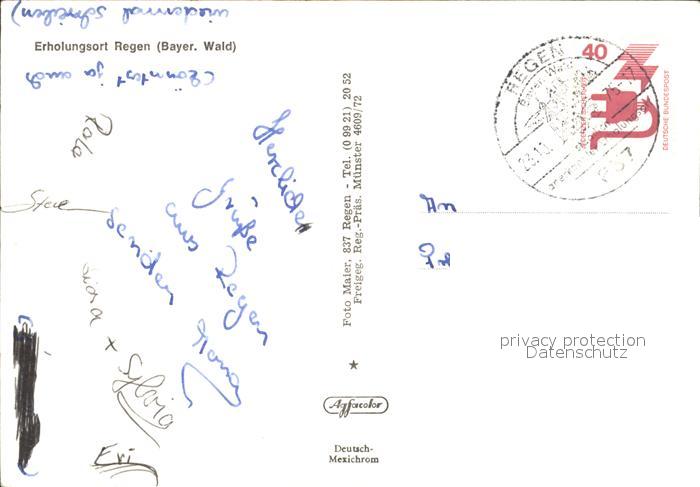 Erholungsort Regen (Bayer. Wald)
Herzliche
Grüße
aus Regen
senden
Steve
Sylvia
Evi
(Könntest ja auch
wiedermal schreiben)
Foto Maier, 837 Regen - Tel. (0 99 21) 20 52
Freigeg. Reg.-Präs. Münster 4609/72
Agfacolor
Deutsch-
Mexichrom
REGEN
Bayer. Wald
837
40
DEUTSCHE BUNDESPOST
An
privacy protection
Datenschutz